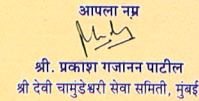 आपला नम्र
श्री. प्रकाश गजानन पाटील
श्री देवी चामुंडेश्वरी सेवा समिती, मुंबई